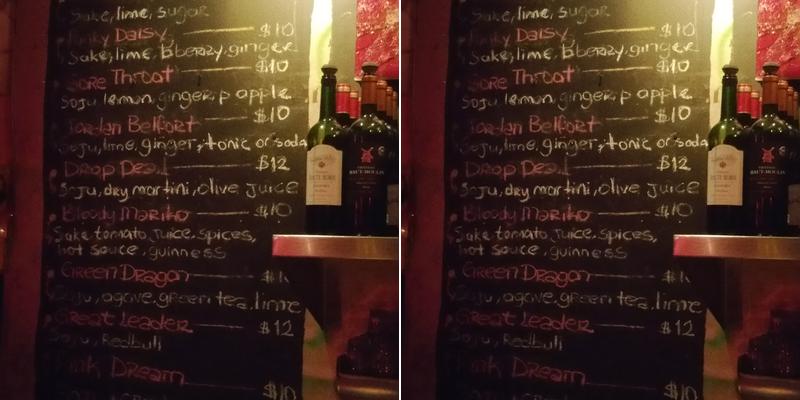 Sake, lime, sugar
Daisy $10
Sake, lime, bberry, ginger
$10
Sore Throat
Soju lemon, ginger, p apple
$10
Jordan Belfort
Soju, lime, ginger, tonic or soda
Drop Dead $12
Soju, dry martini, olive juice
Bloody Mariko $10
Sake tomato juice, spices,
hot sauce, guinness
Green Dragon
Soju, agave, green tea, lime
Great Leader $12
Soju, Redbull
Pink Dream
$10
HAUT-MOULIN
Sake, lime, sugar
Daisy $10
Sake, lime, bberry, ginger
$10
Sore Throat
Soju lemon, ginger, p apple
$10
Jordan Belfort
Soju, lime, ginger, tonic or soda
Drop Dead $12
Soju, dry martini, olive juice
Bloody Mariko $10
Sake tomato juice, spices,
hot sauce, guinness
Green Dragon
Soju, agave, green tea, lime
Great Leader $12
Soju, Redbull
Pink Dream
$10
HAUT-MOULIN